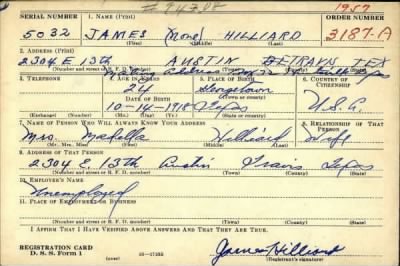 # 94308
1957
SERIAL NUMBER 1. NAME (Print) ORDER NUMBER
5032 JAMES (None) HILLIARD 3187-A
(First) (Middle) (Last)
2. ADDRESS (Print)
2304 E 13th AUSTIN TRAVIS TEX
(Number and street or R. F. D. number) (Town) (County) (State)
3. TELEPHONE 4. AGE IN YEARS 5. PLACE OF BIRTH 6. COUNTRY OF CITIZENSHIP
24 Georgetown
DATE OF BIRTH (Town or county)
10-14-1918 Texas U.S.A.
(Exchange) (Number) (Mo.) (Day) (Yr.) (State or country)
7. NAME OF PERSON WHO WILL ALWAYS KNOW YOUR ADDRESS 8. RELATIONSHIP OF THAT PERSON
Mrs. Hilliard Wife
(Mr., Mrs., Miss) (First) (Middle) (Last)
9. ADDRESS OF THAT PERSON
2304 E. 13th Austin Travis Texas
(Number and street or R. F. D. number) (Town) (County) (State)
10. EMPLOYER'S NAME
Unemployed
11. PLACE OF EMPLOYMENT OR BUSINESS
(Number and street or R. F. D. number) (Town) (County) (State)
I AFFIRM THAT I HAVE VERIFIED ABOVE ANSWERS AND THAT THEY ARE TRUE.
REGISTRATION CARD
D. S. S. Form 1 (over) James Hilliard
(Registrant's signature)